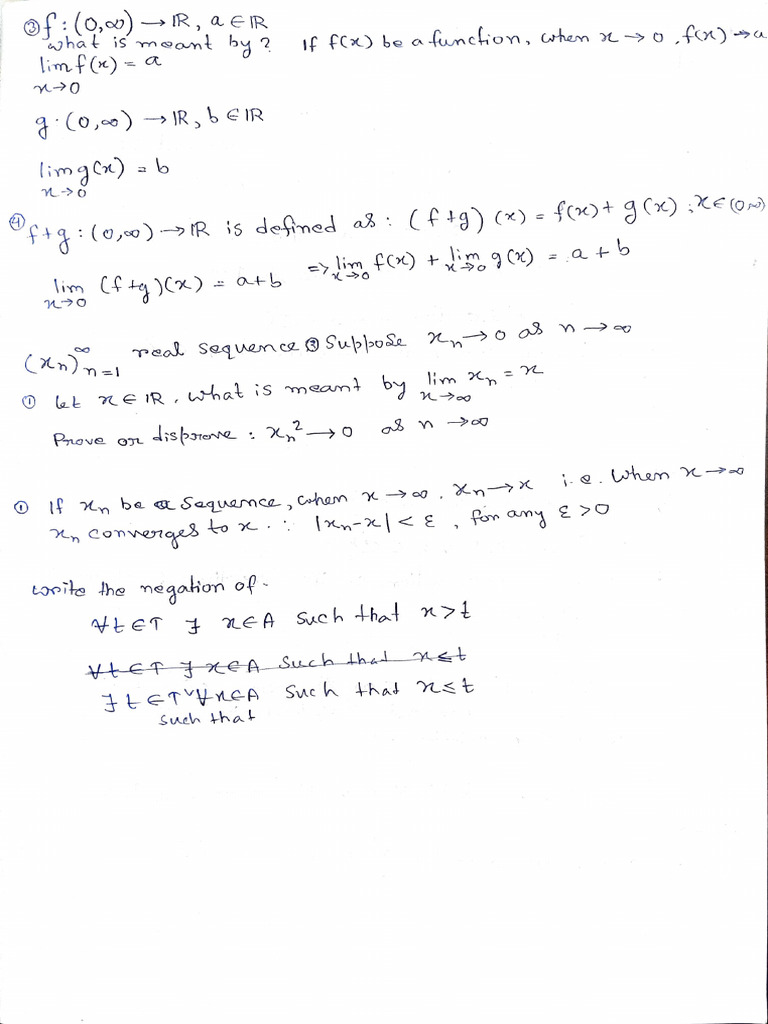 ③ f : (0,∞) → ℝ, a ∈ ℝ
what is meant by? If f(x) be a function, when x → 0, f(x) → a
lim f(x) = a
x→0
g : (0,∞) → ℝ, b ∈ ℝ
lim g(x) = b
x→0
④ f+g : (0,∞) → ℝ is defined as : (f+g)(x) = f(x) + g(x) ; x ∈ (0,∞)
lim (f+g)(x) = a+b ⇒ lim f(x) + lim g(x) = a + b
x→0 x→0 x→0
(xₙ)^∞ₙ₌₁ real sequence ② Suppose xₙ → 0 as n → ∞
① Let x ∈ ℝ. What is meant by lim xₙ = x
x→∞
Prove or disprove : xₙ² → 0 as n → ∞
① If xₙ be a sequence, when x → ∞. xₙ → x i.e. when x → ∞
xₙ converges to x. ∴ |xₙ-x| < ε, for any ε > 0
Write the negation of.
∀ t ∈ T ∃ x ∈ A such that x > t
∀ t ∈ T ∃ x ∈ A such that x ≤ t
∃ t ∈ T ∀ x ∈ A such that x ≤ t
such that